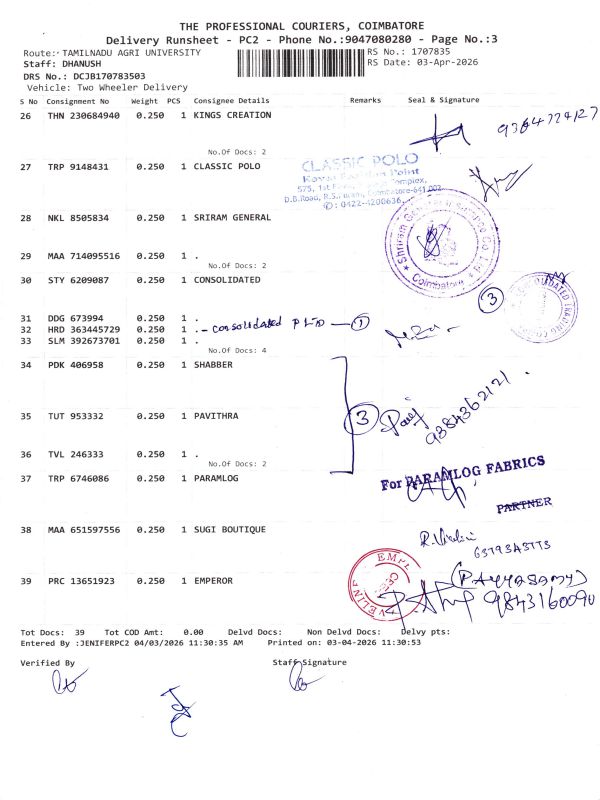 THE PROFESSIONAL COURIERS, COIMBATORE
Delivery Runsheet - PC2 - Phone No.:9047080280 - Page No.:3
Route: TAMILNADU AGRI UNIVERSITY
RS No.: 1707835
Staff: DHANUSH
RS Date: 03-Apr-2026
DRS No.: DCJB170783503
Vehicle: Two Wheeler Delivery
S No Consignment No Weight PCS Consignee Details Remarks Seal & Signature
26 THN 230684940 0.250 1 KINGS CREATION
No.Of Docs: 2
27 TRP 9148431 0.250 1 CLASSIC POLO
CLASSIC POLO
Point
575, 1st Complex,
D.B.Road, R.S. Coimbatore-641 002
✆: 0422-4200636
28 NKL 8505834 0.250 1 SRIRAM GENERAL
Coimbatore
29 MAA 714095516 0.250 1 .
No.Of Docs: 2
30 STY 6209087 0.250 1 CONSOLIDATED
3
CONSOLIDATED TRADING
31 DDG 673994 0.250 1 .
32 HRD 363445729 0.250 1 . - Consolidated P LTD - 1
33 SLM 392673701 0.250 1 .
No.Of Docs: 4
34 PDK 406958 0.250 1 SHABBER
35 TUT 953332 0.250 1 PAVITHRA
3
9384362121
36 TVL 246333 0.250 1 .
No.Of Docs: 2
37 TRP 6746086 0.250 1 PARAMLOG
For PARAMLOG FABRICS
PARTNER
38 MAA 651597556 0.250 1 SUGI BOUTIQUE
39 PRC 13651923 0.250 1 EMPEROR
9843160090
Tot Docs: 39 Tot COD Amt: 0.00 Delvd Docs: Non Delvd Docs: Delvy pts:
Entered By :JENIFERPC2 04/03/2026 11:30:35 AM Printed on: 03-04-2026 11:30:53
Verified By Staff Signature